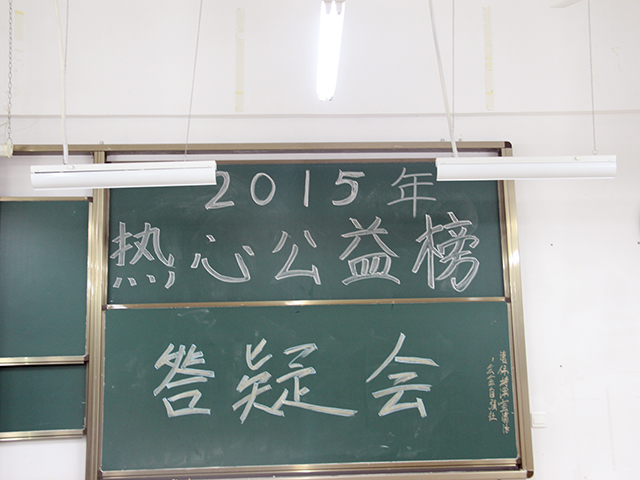 2015年
热心公益榜
答疑会